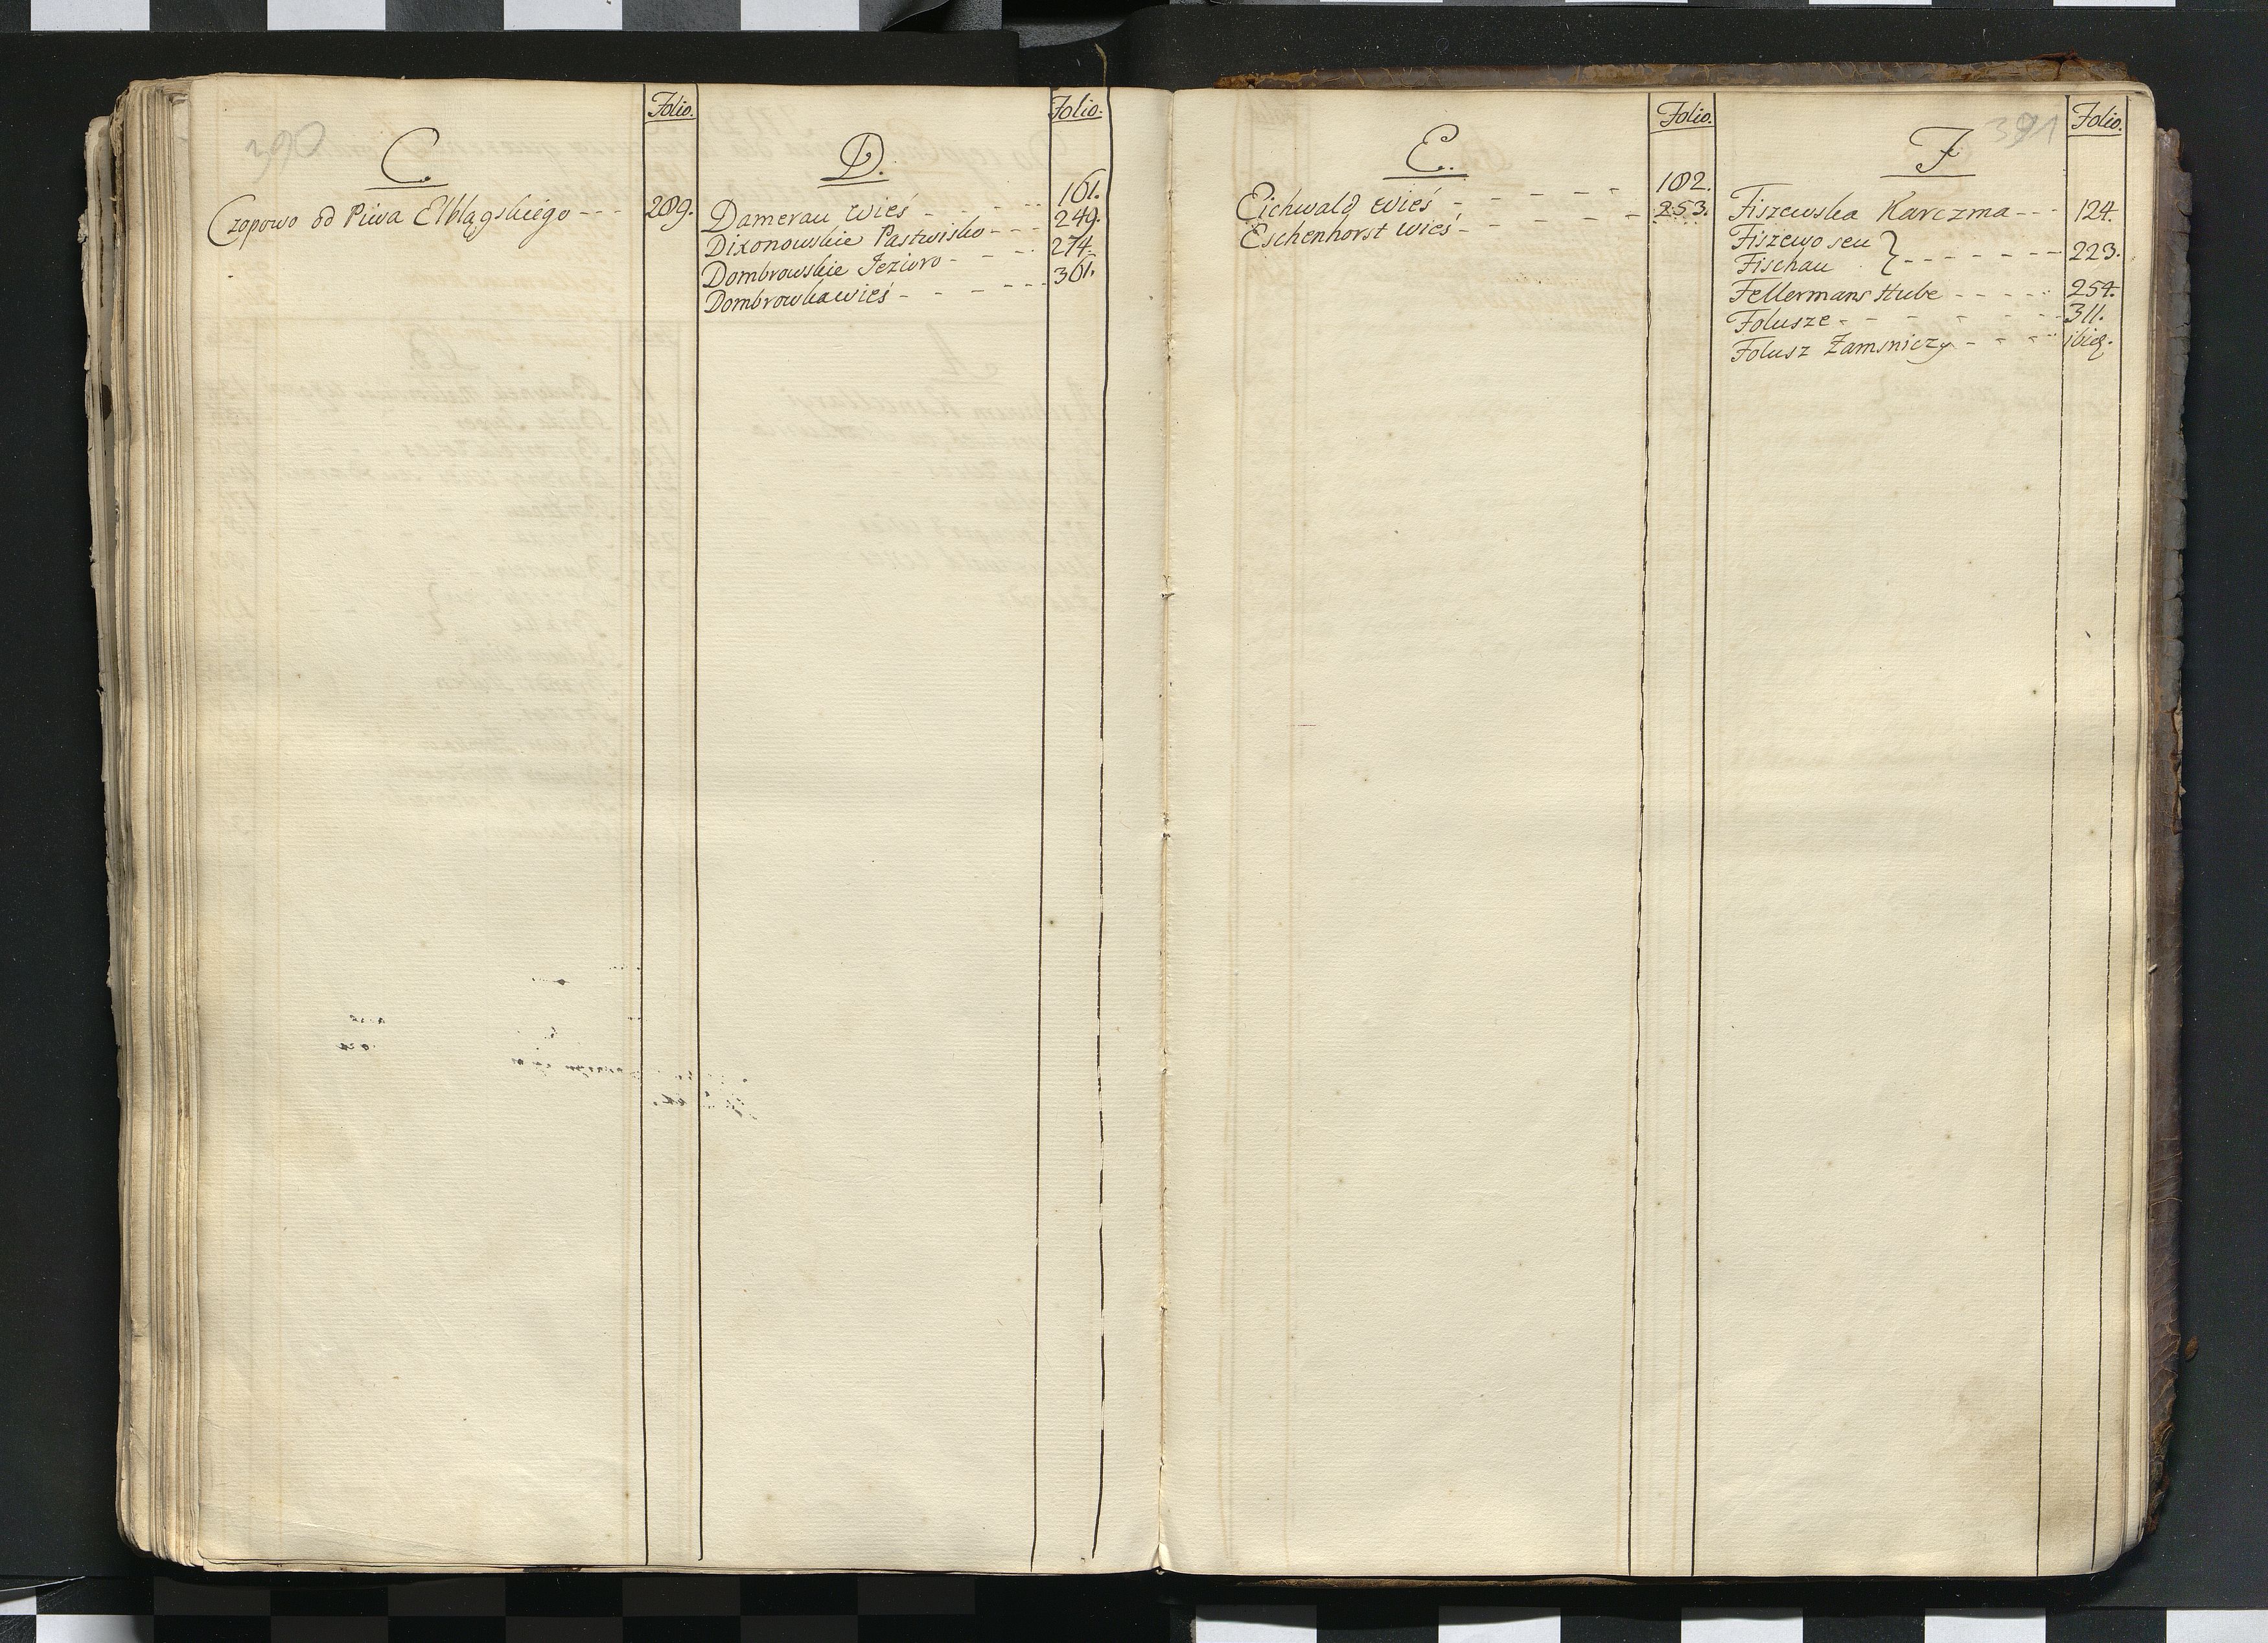 390
Folio.
C.
Czopowo od Piwa Elblągskiego - - - 289.
Folio.
D.
Damerau Wieś - - - 161.
Dixonowskie Pastwisko - - - 249.
Dombrowskie Jezioro - - - 274.
Dombrowka wieś - - - 361.
Folio.
E.
Eichwald Wieś - - - 182.
Eschenhorst Wieś - - - 253.
391
Folio.
F
Fiszewska Karczma - - - 124.
Fiszewo seu
Fischau } - - - 223.
Fellermans Hube - - - 254.
Folusze - - - 311.
Folusz Zamsniczy - - - ibid.